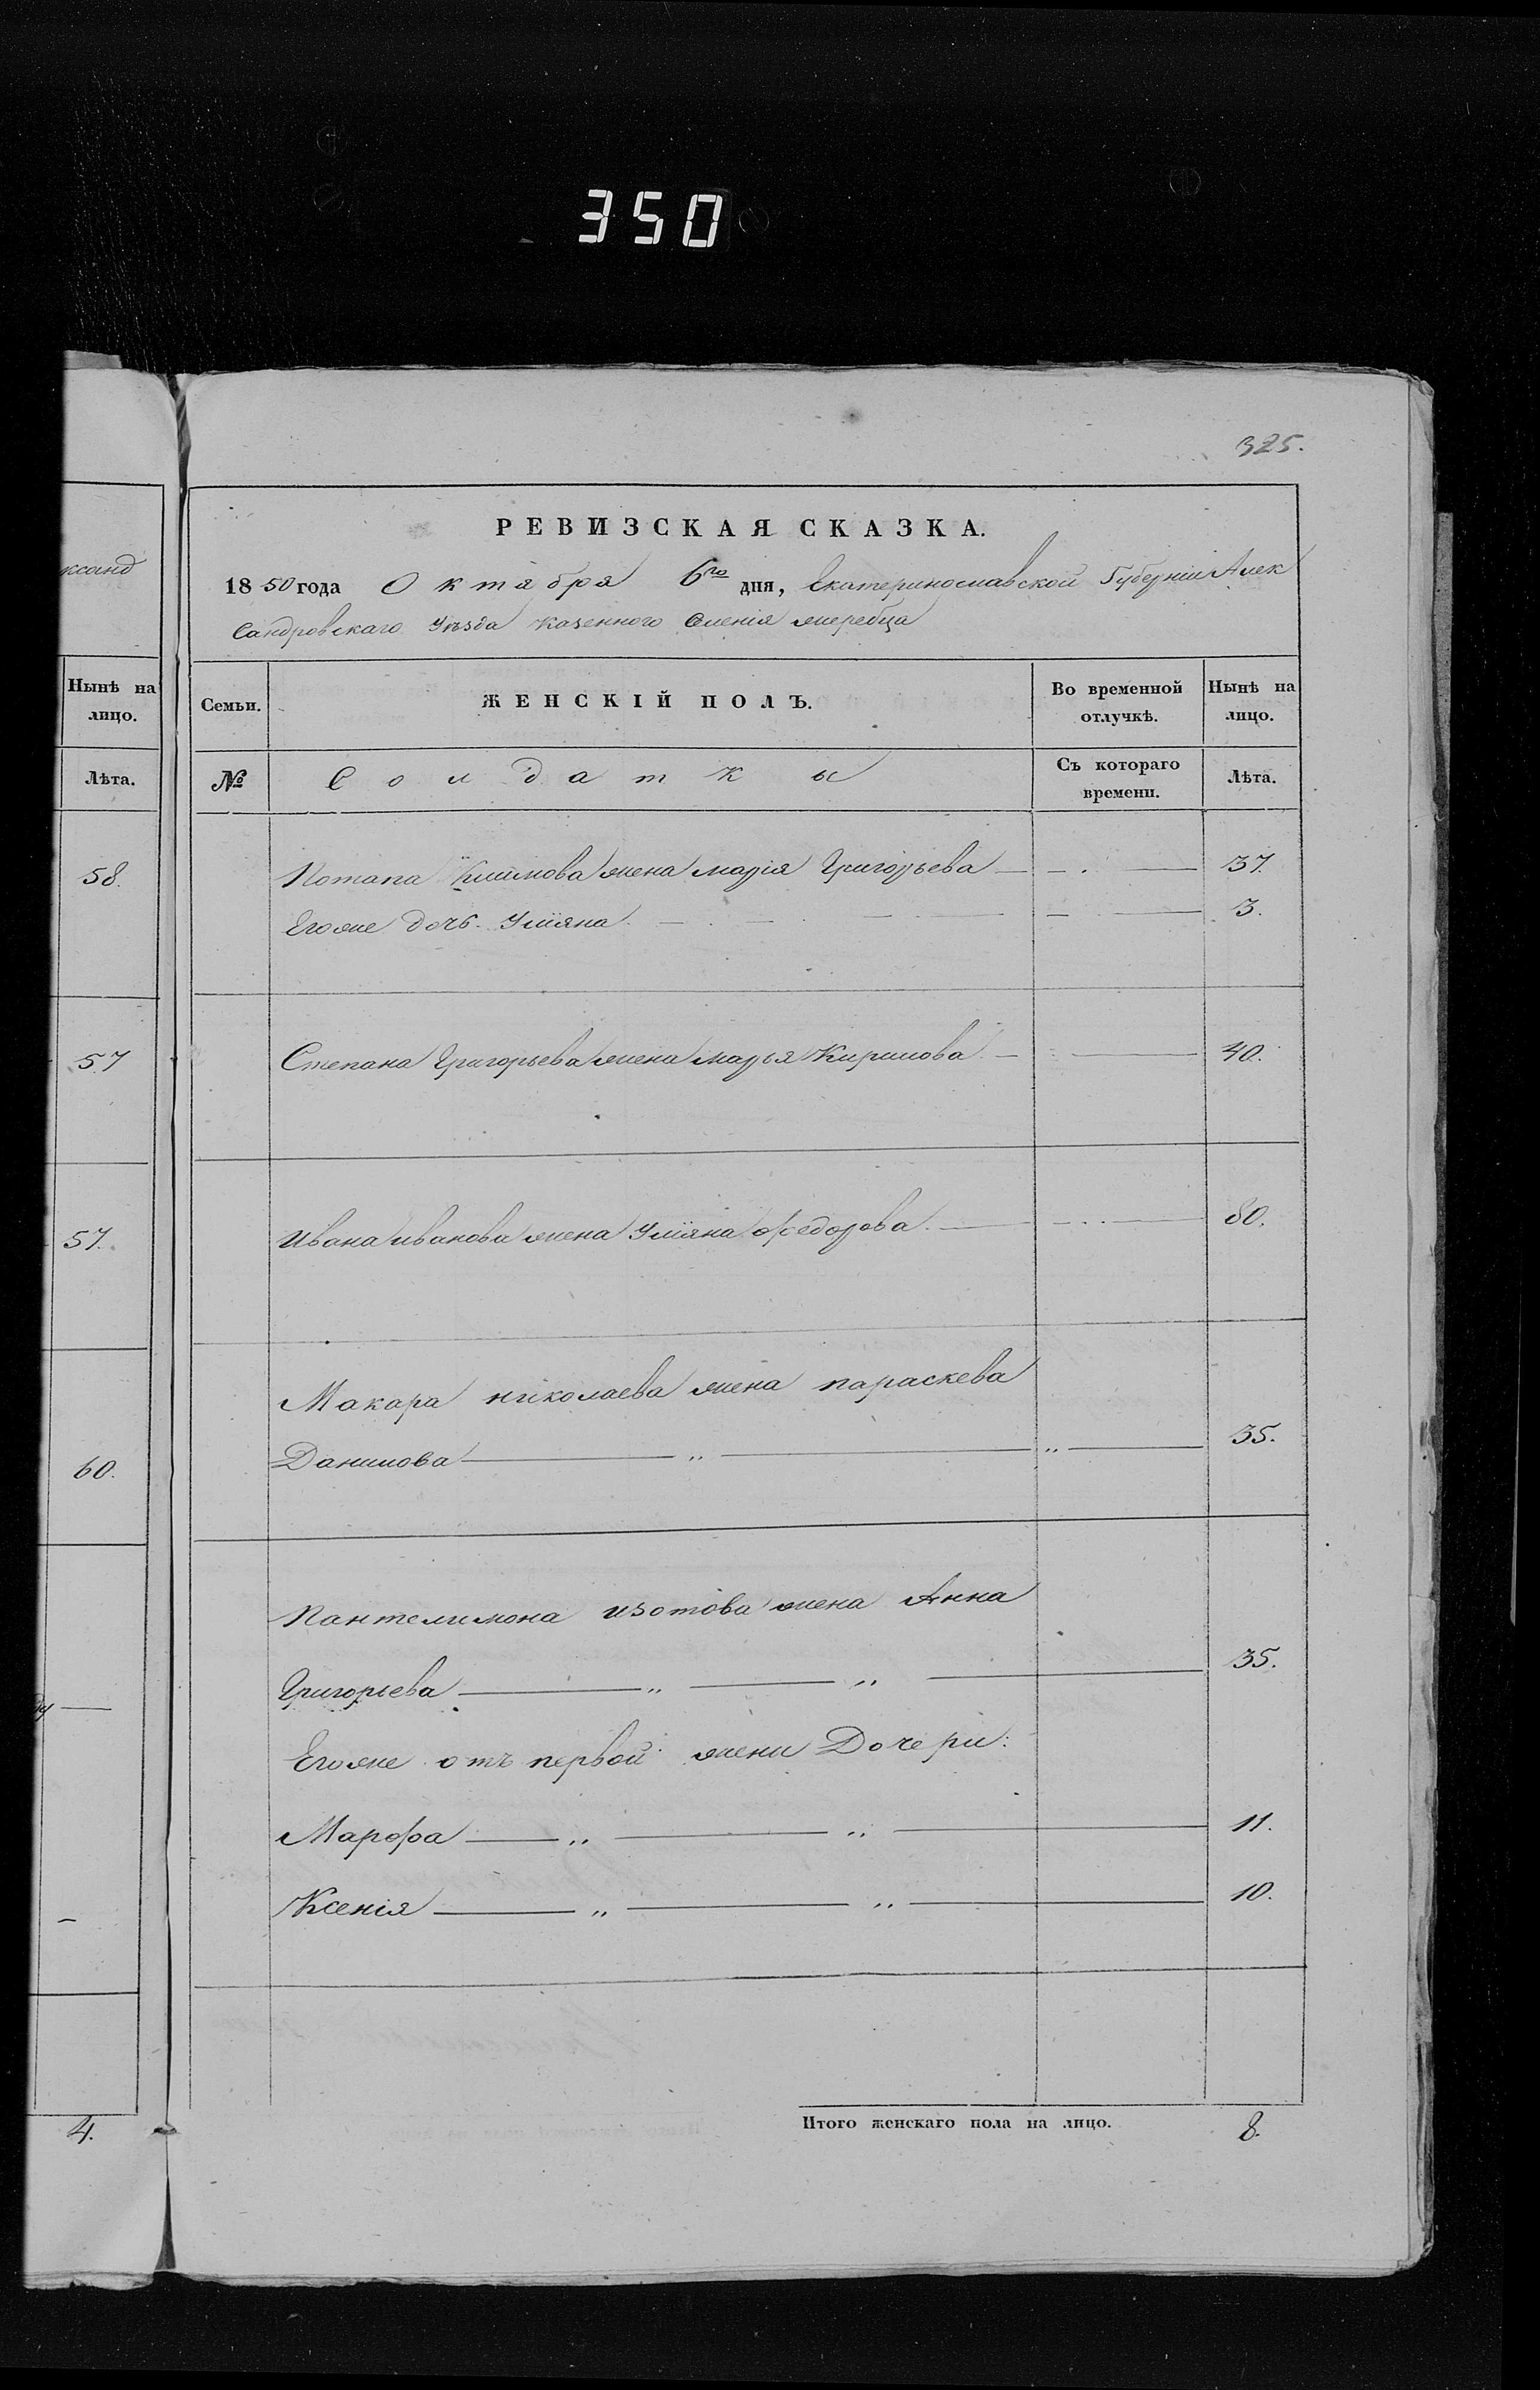 350
325.
ксанд
Нынѣ на
лицо.
Лѣта.
58.
57
57.
60.
4.
РЕВИЗСКАЯ СКАЗКА.
1850 года Октября 6го дня, Екатеринославской Губерніи Алек
сандровскаго Уѣзда казенного селенія жеребца
Семьи.
ЖЕНСКІЙ ПОЛЪ.
Во временной
отлучкѣ.
Нынѣ на
лицо.
№
Солдатки
Съ котораго
времени.
Лѣта.
Потапа Климова жена марія Григорьева 37.
Егоже дочь Уліяна 3.
Степана Григорьева жена марья Кирилова 40.
Ивана иванова жена Уліяна федорова 80.
Макара николаева жена параскева
Данилова 35.
Пантелимона изотова жена Анна
Григорьева 35.
Егоже отъ первой жены Дочери:
Марфа 11.
Ксенія 10.
Итого женскаго пола на лицо. 8.